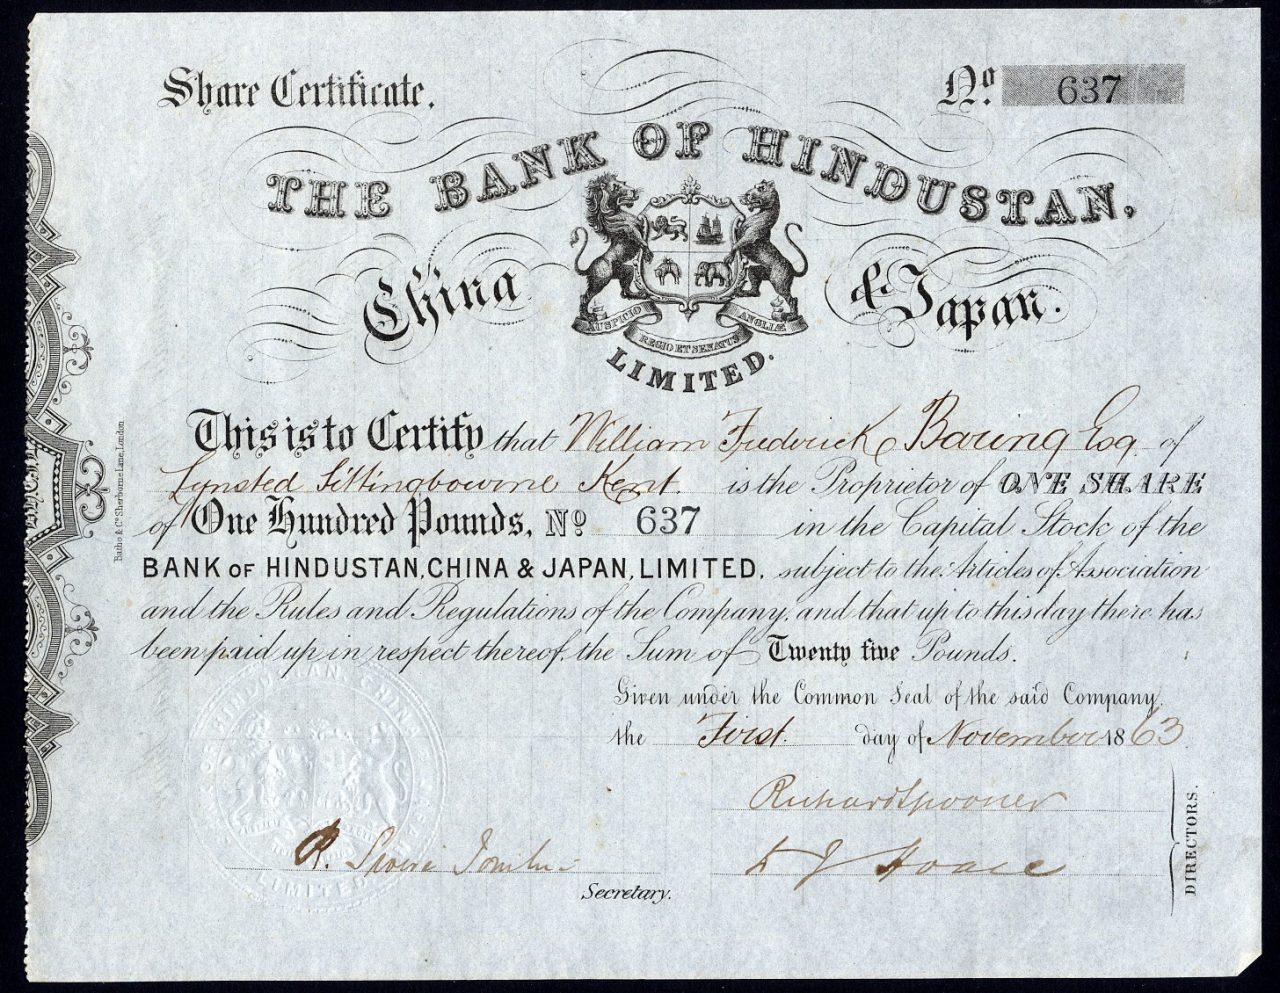 Share Certificate.
No. 637
THE BANK OF HINDUSTAN,
China & Japan.
AUSPICIO REGIO ET SENATUS ANGLIÆ
LIMITED.
This is to Certify that William Frederick Baring Esq. of
Lynsted Sittingbourne Kent. is the Proprietor of ONE SHARE
of One Hundred Pounds, No 637 in the Capital Stock of the
BANK OF HINDUSTAN, CHINA & JAPAN, LIMITED, subject to the Articles of Association
and the Rules and Regulations of the Company, and that up to this day there has
been paid up in respect thereof, the Sum of Twenty five Pounds.
Given under the Common Seal of the said Company,
the First day of November 1863
Richard Spooner
Secretary.
DIRECTORS.
Batho & Co. Sherborne Lane, London.
HINDUSTAN, CHINA
LIMITED